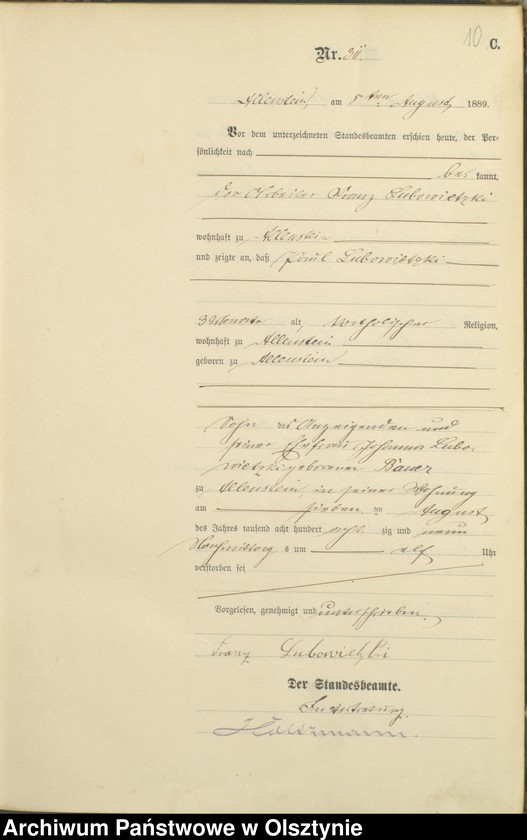 10 C.
Nr.
Allenstein, am 8ten August 1889.
Vor dem unterzeichneten Standesbeamten erschien heute, der Per-
sönlichkeit nach
be kannt,
der Arbeiter Franz Lubowietzki
wohnhaft zu Allenstein
und zeigte an, daß Paul Lubowietzki
3 Monate alt, katholischer Religion,
wohnhaft zu Allenstein
geboren zu Allenstein
Sohn des Anzeigenden und
seiner Ehefrau Johanna Lubo-
wietzki geborenen Bauer
zu Allenstein in seiner Wohnung
am sieben ten August
des Jahres tausend acht hundert acht zig und neun
Nachmittag s um elf Uhr
verstorben sei
Vorgelesen, genehmigt und unterschrieben.
Franz Lubowietzki
Der Standesbeamte.
In Vertretung.
Holtzmann.
Archiwum Państwowe w Olsztynie